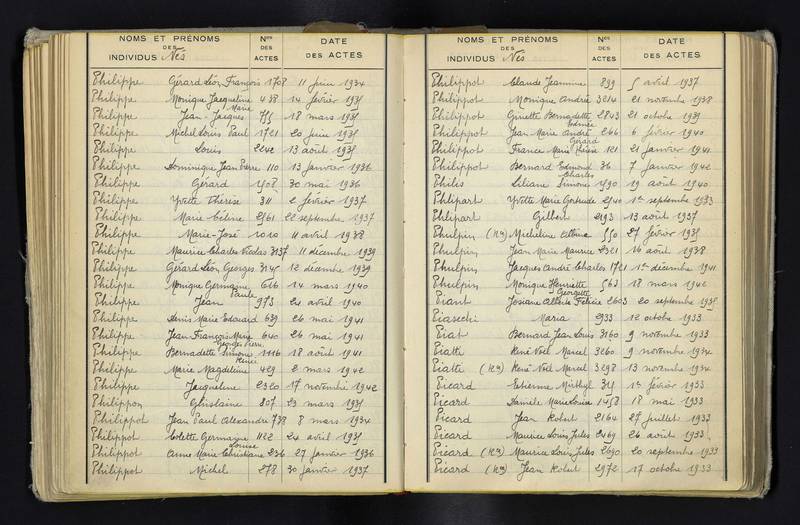 NOMS ET PRÉNOMS DES INDIVIDUS Nés Nos DES ACTES DATE DES ACTES
Philippe Gérard Léon François 1708 11 juin 1934
Philippe Monique Jacqueline Marie 438 14 février 1935
Philippe Jean-Jacques 755 18 mars 1935
Philippe Michel Louis Paul 1721 20 juin 1935
Philippe Louis 2242 13 août 1935
Philippe Dominique Jean Pierre 110 13 janvier 1936
Philippe Gérard 1508 30 mai 1936
Philippe Yvette Thérèse 311 2 février 1937
Philippe Marie Céline 2561 22 septembre 1937
Philippe Marie-José 1010 11 avril 1938
Philippe Maurice Charles Nicolas 3137 11 décembre 1939
Philippe Gérard Léon Georges 3145 12 décembre 1939
Philippe Monique Germaine Paule 616 14 mars 1940
Philippe Jean 973 24 avril 1940
Philippe Denis Marie Edouard 639 26 mai 1941
Philippe Jean François Marie 640 26 mai 1941
Philippe Bernadette Simone Renée 1116 18 août 1941
Philippe Marie Magdeleine 429 2 mars 1942
Philippe Jacqueline 2320 17 novembre 1942
Philippon Ghislaine 807 23 mars 1935
Philippot Jean Paul Alexandre 738 8 mars 1934
Philippot Colette Germaine Louise 1122 24 avril 1935
Philippot Anne Marie Christiane 236 27 janvier 1936
Philippot Michel 278 30 janvier 1937
NOMS ET PRÉNOMS DES INDIVIDUS Nés Nos DES ACTES DATE DES ACTES
Philippot Claude Jeannine 899 5 avril 1937
Philippot Monique André 3214 21 novembre 1938
Philippot Ginette Bernadette 2843 21 octobre 1939
Philippot Jean Marie André 266 6 février 1940
Philippot France Marie 121 21 janvier 1941
Philippot Bernard Edmond Charles 36 7 janvier 1942
Philis Liliane Simone 1590 19 août 1940
Phlipart Yvette Marie Gertrude 2540 1er septembre 1933
Phlipart Gilbert 2193 13 août 1937
Phulpin (Rn) Micheline 550 27 février 1935
Phulpin Jean Marie Maurice 2321 16 août 1938
Phulpin Jacques André Charles 1721 1er décembre 1941
Phulpin Monique Henriette Georgette 563 18 mars 1942
Piant Josiane Félicie 2603 20 septembre 1935
Piasecki Maria 2933 12 octobre 1933
Piat Bernard Jean Louis 3160 9 novembre 1933
Piatte René Noël Marcel 3260 9 novembre 1934
Piatte (Rn) René Noël Marcel 3298 13 novembre 1934
Picard Etienne 315 1er février 1933
Picard Danièle Marie Louise 1458 18 mai 1933
Picard Jean Robert 2164 27 juillet 1933
Picard Maurice Louis Jules 2469 26 août 1933
Picard (Rn) Maurice Louis Jules 2690 20 septembre 1933
Picard (Rn) Jean Robert 2972 17 octobre 1933